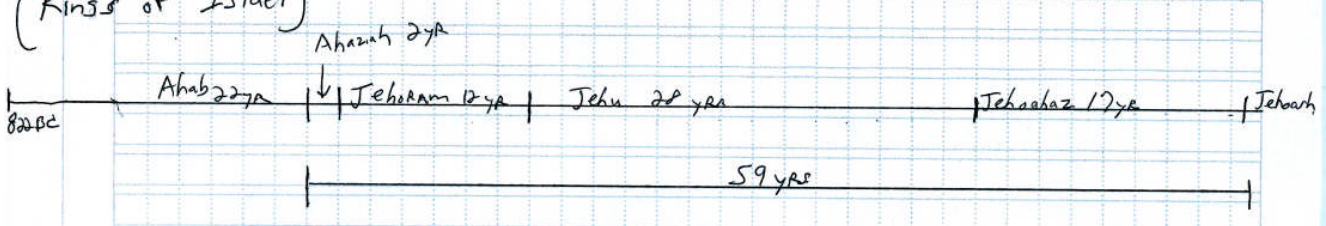 (Kings of Israel)
Ahaziah 2yR
Ahab 22yR
Jehoram 12 yR
Jehu 28 yRs
Jehoahaz 17yR
Jehoash
822BC
59 yRs